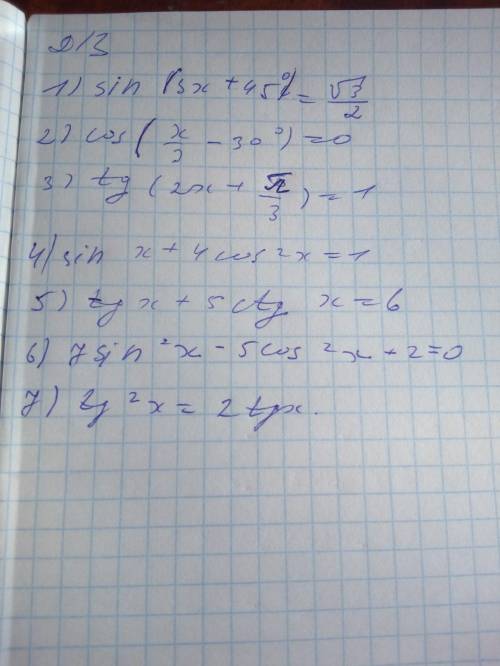 Д/З
1) sin (3x + 45°) = √3/2
2) cos (x/2 - 30°) = 0
3) tg (2x + π/3) = 1
4) sin x + 4 cos 2x = 1
5) tg x + 5 ctg x = 6
6) 7 sin²x - 5 cos 2x + 2 = 0
7) tg²x = 2 tg x.